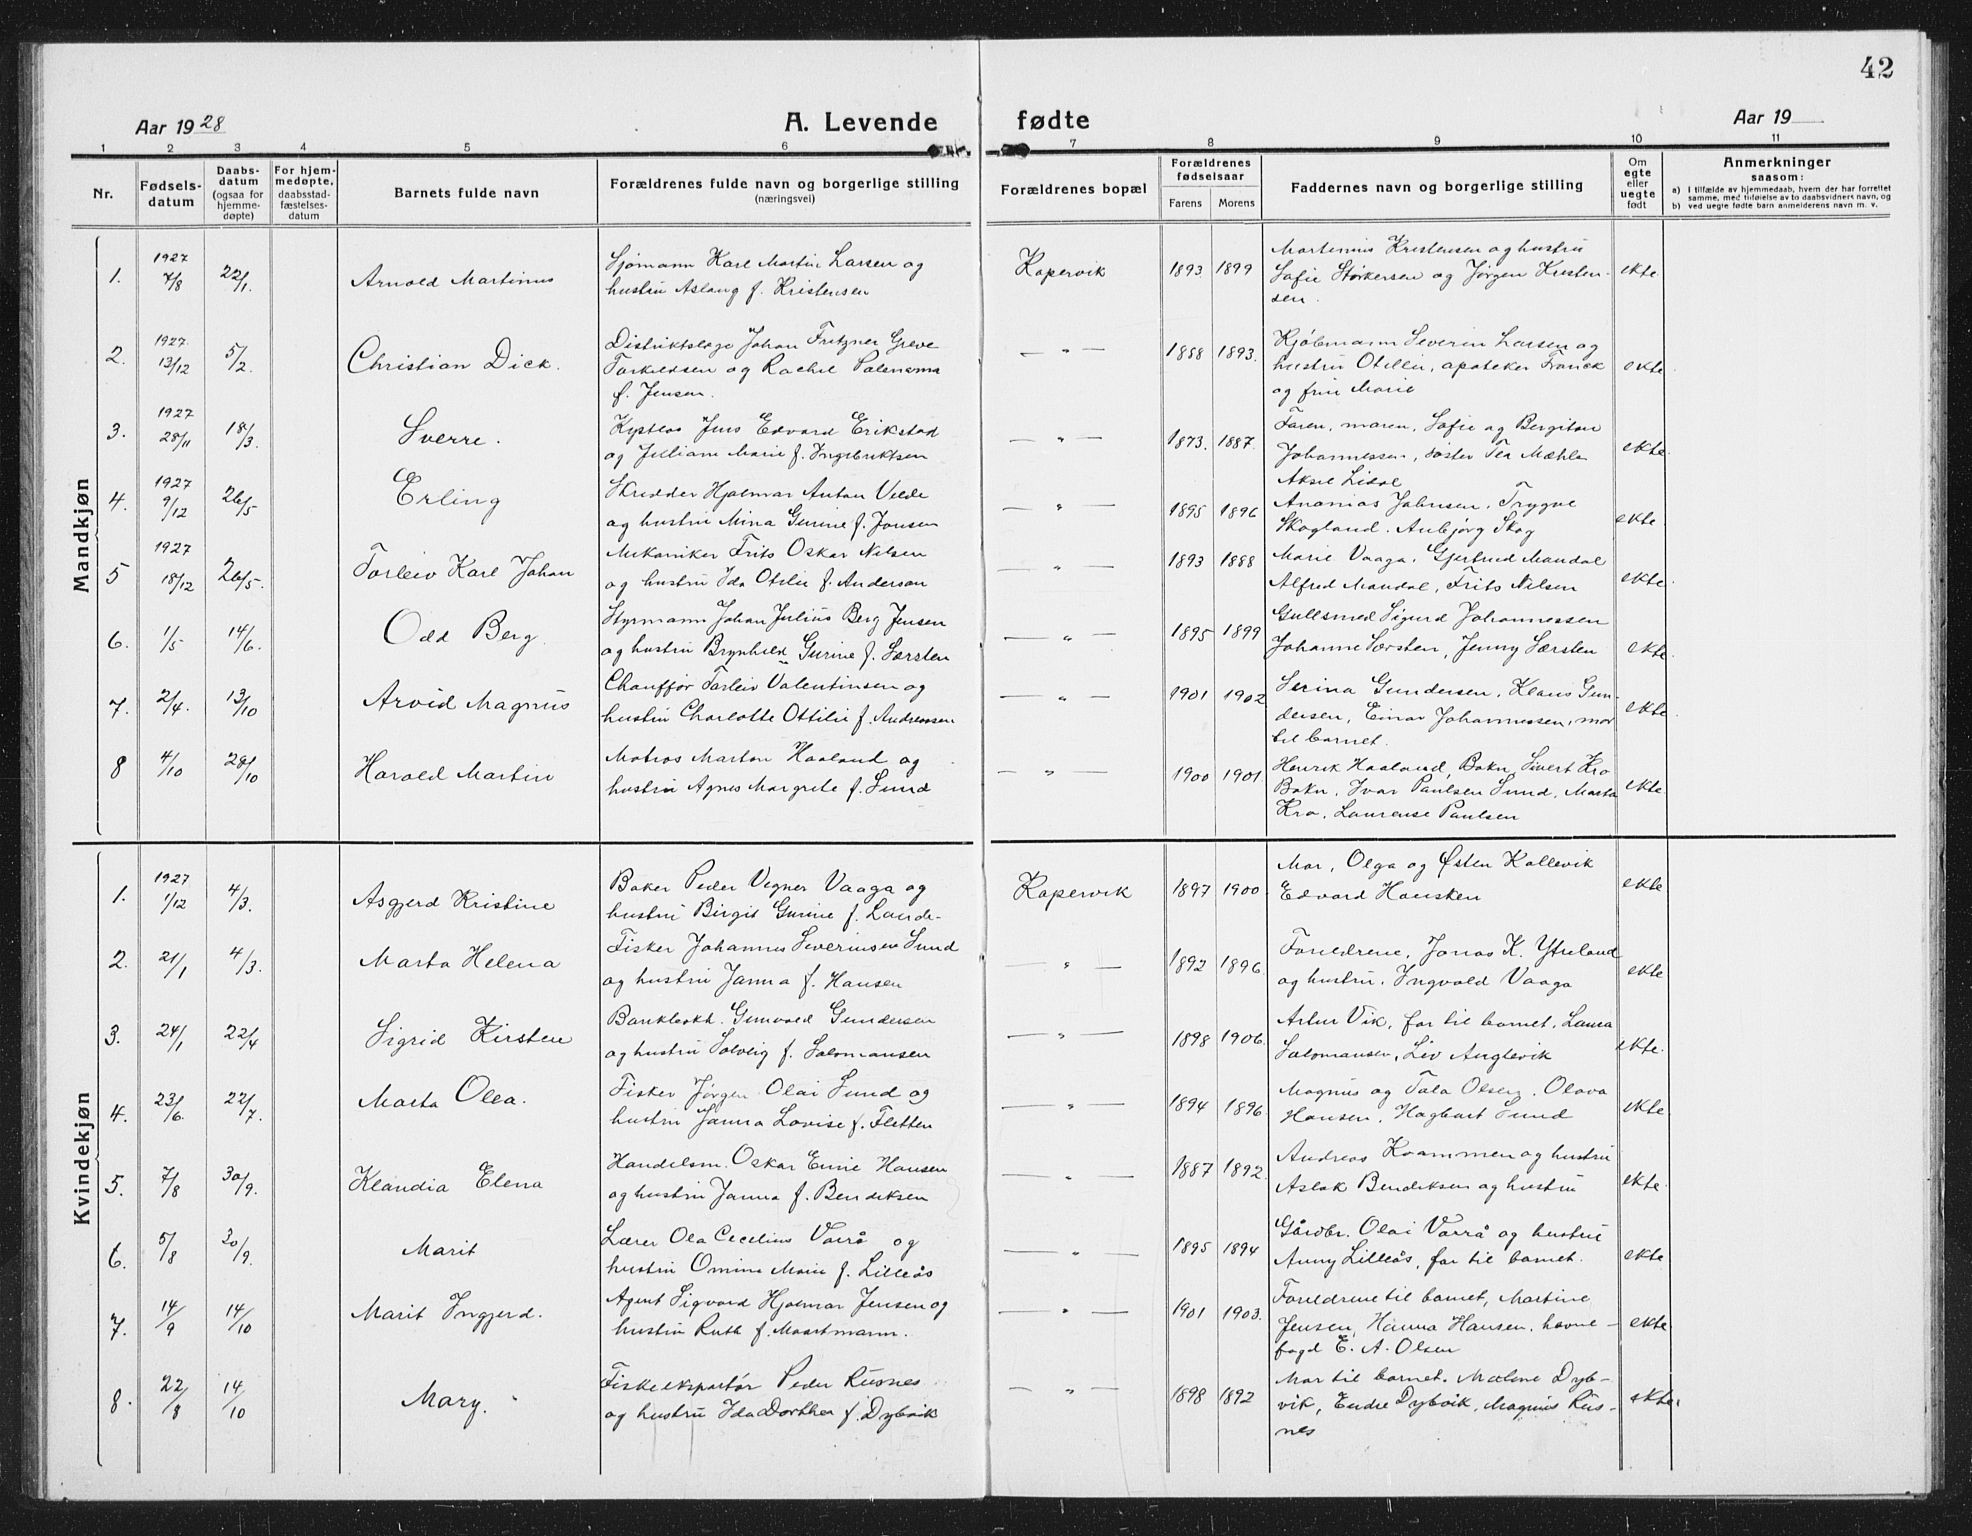 42
Aar 1928 A. Levende fødte Aar 19
1 2 3 4 5 6 7 8 9 10 11
Nr. Fødselsdatum Daabsdatum (ogsaa for hjemmedøpte) For hjemmedøpte, daabsstadfæstelsesdatum Barnets fulde navn Forældrenes fulde navn og borgerlige stilling (næringsvei) Forældrenes bopæl Forældrenes fødselsaar Farens Morens Faddernes navn og borgerlige stilling Om egte eller uegte født Anmerkninger saasom:
a) I tilfælde av hjemmedaab, hvem der har forrettet samme, med tilføielse av to daabsvidners navn, og
b) ved uegte fødte barn anmelderens navn m. v.
Mandkjøn
1. 1927 7/8 22/1 Arnold Martinus Sjømann Karl Martin Larsen og Kopervik 1893 1899 Martinius Kristensen og hustru ekte
hustru Aslaug f. Kristensen Sofie Størkersen og Jørgen Kristen-
sen.
2. 1927 13/12 5/2. Christian Dick. Distriktslæge Johan Fritzner Greve — " — 1888 1893. Kjøbmann Severin Larsen og ekte
Torkildsen og Rachel hustru Otilie, apoteker Franck
f. Jensen. og fru Marie
3. 1927 28/11 18/3. Sverre. Jens Edvard Erikstad — " — 1873. 1887. Faren, moren, Sofie og Bergiton ekte
og Juliane Marie f. Ingebriktsen Johannessen, søster Tea Mæhle
Aksel Lidal
4. 1927 9/12 26/5 Erling Skredder Hjalmar Anton Velde — " — 1895 1896 Ananias Johnsen. Trygve ekte
og hustru Mina Gurine f. Jonsen Skogland. Anbjørg Skog
5 1927 18/12 26/5. Torleiv Karl Johan Mekaniker Frits Oskar Nilsen — " — 1893 1888 Marie Vaaga. Gjertrud Mandal ekte
og hustru Ida Otilie f. Anderson Alfred Mandal, Frits Nilsen
6. 1/5 14/6. Odd Berg. Styrmann Johan Julius Berg Jensen — " — 1895 1899 Gullsmed Sigurd Johannessen ekte
og hustru Brynhild Gurine f. Særsten Johanne Særsten, Jenny Særsten
7. 2/4. 13/10 Arvid Magnus Chauffør Torleiv Valentinsen og — " — 1901 1902 Serina Gundersen, Klaus Gun- ekte
hustru Charlotte Ottilie f. Andreassen dersen, Einar Johannessen, mor
til barnet.
8 4/10 28/10 Harald Martin Matros Marton Haaland og — " — 1900 1901 Henrik Haaland, Bokn, Sivert Kro ekte
hustru Agnes Margrete f. Sund Bokn, Ivar Paulsen Sund, Marta
Kro, Laurense Paulsen
Kvindekjøn
1. 1927 1/12 4/3. Asgjerd Kristine Baker Peder Vegner Vaaga og Kopervik 1897 1900 Mor, Olga og Østen Kallevik ekte
hustru Birgit Gurine f. Lande. Edvard Hausken
2. 21/1 4/3. Marta Helena Fisker Johannes Severinsen Sund — " — 1892 1896. Foreldrene, Jonas K. Ytreland ekte
og hustru Janna f. Hansen og hustru, Ingvald Vaaga
3. 24/1 22/4 Sigrid Kirsten Bankbokh. Gunvald Gundersen — " — 1898 1906. Artur Vik, far til barnet, Laura ekte.
og hustru Solveig f. Salomonsen Salomonsen, Liv
4. 23/6. 22/7. Marta Olea. Fisker Jørgen Olai Sund og — " — 1894 1896. Magnus og Tala Olsen, Olava ekte
hustru Janna Lovise f. Fletten Hansen, Hagbart Sund
5. 7/8 30/9. Klandia Elena Handelsm. Oskar Hansen — " — 1887 1892. Andreas Kvammen og hustru ekte
og hustru Janna f. Bendiksen Aslak Bendiksen og hustru
6. 5/8 30/9. Marit Lærer Ola Cecelius Varrå og — " — 1895 1894 Gårdbr. Olai Varrå og hustru ekte
hustru Omine Marie f. Lilleås Anny Lilleås, far til barnet.
7. 14/9 14/10 Marit Ingjerd. Agent Sigvard Hjalmar Jensen og — " — 1901 1903. Foreldrene til barnet, Martine ekte
hustru Ruth f. Maartmann. Jensen, Hanna Hansen, havne-
fogd E. A. Olsen
8. 22/8 14/10 Mary. Fiskeeksportør Peder Rusnes — " — 1898 1892 Mor til barnet. Malene Dyb- ekte.
og hustru Ida Dorthea f. Dybvik vik, Endre Dybvik, Magnus Rus-
nes